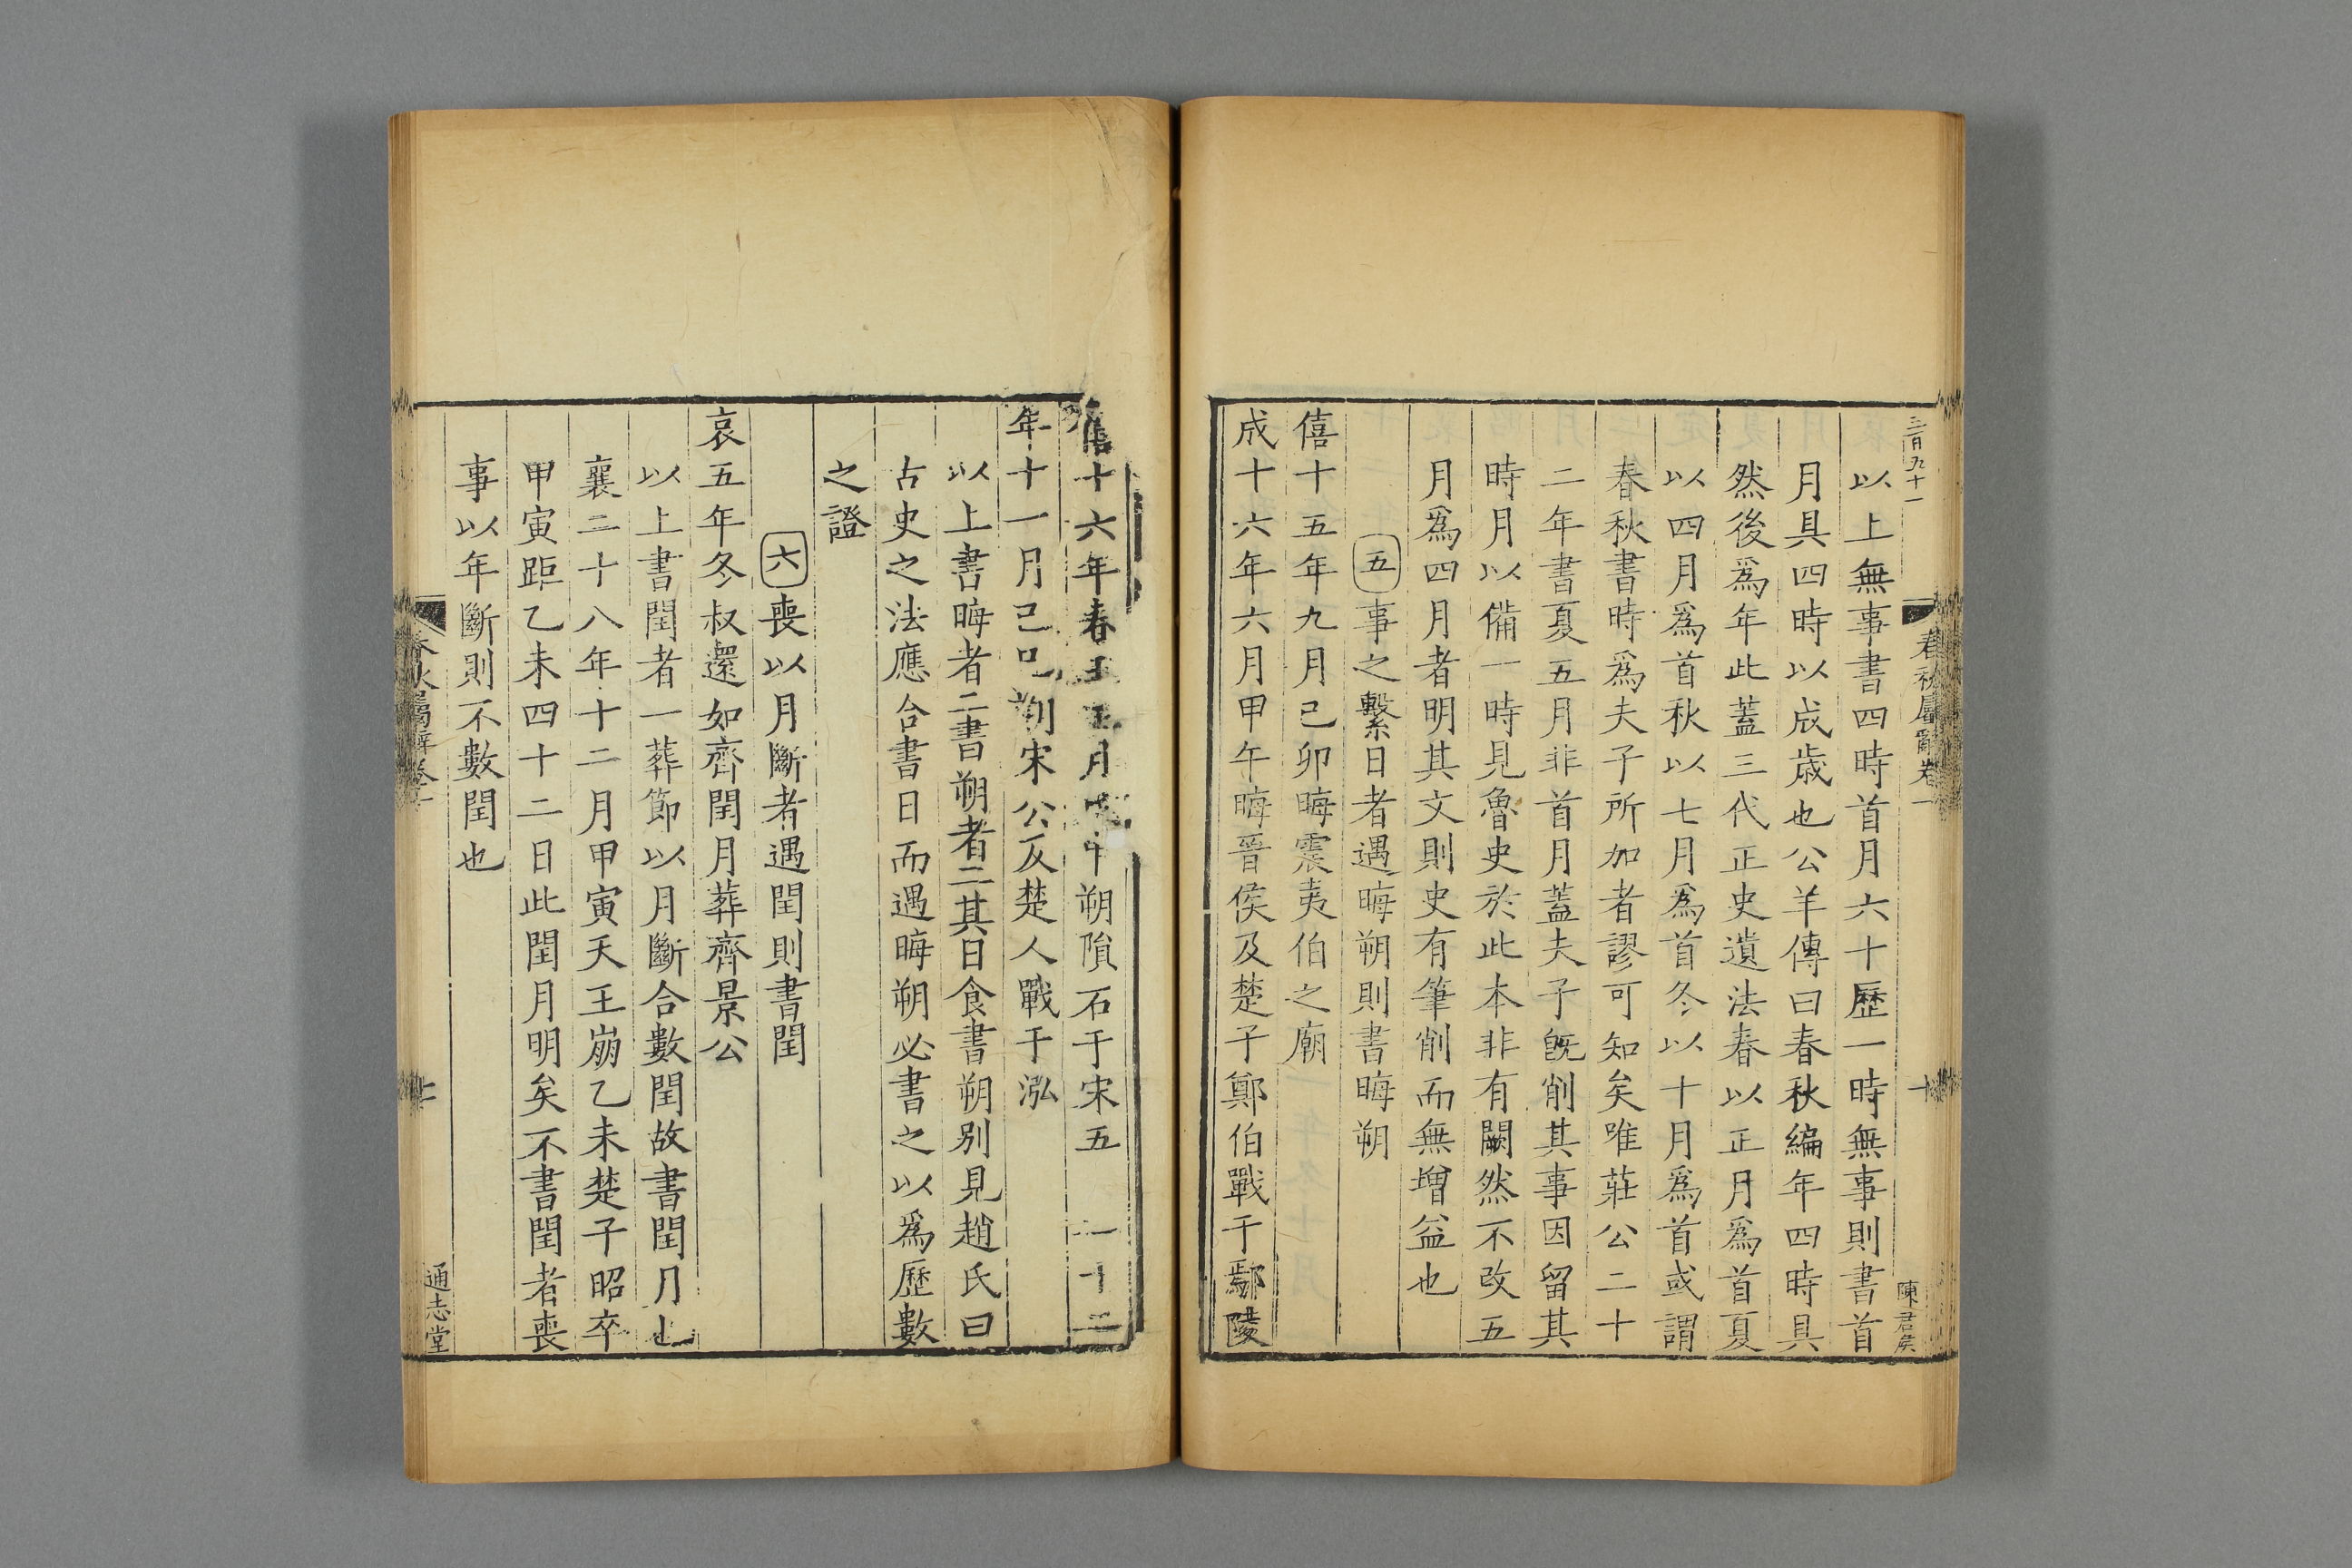 三百九十一
春秋屬辭卷一
十
陳君矦
以上無事書四時首月六十歷一時無事則書首
月具四時以成歲也公羊傳曰春秋編年四時具
然後爲年此蓋三代正史遺法春以正月爲首夏
以四月爲首秋以七月爲首冬以十月爲首或謂
春秋書時爲夫子所加者謬可知矣唯莊公二十
二年書夏五月非首月蓋夫子旣削其事因留其
時月以備一時見魯史於此本非有闕然不改五
月爲四月者明其文則史有筆削而無增益也
五事之繫日者遇晦朔則書晦朔
僖十五年九月己卯晦震夷伯之廟
成十六年六月甲午晦晉侯及楚子鄭伯戰于鄢陵
僖十六年春王正月戊申朔隕石于宋五 二十二
年十一月己巳朔宋公及楚人戰于泓
以上書晦者二書朔者二其日食書朔别見趙氏曰
占史之法應合書日而遇晦朔必書之以爲歷數
之證
六喪以月斷者遇閏則書閏
哀五年冬叔還如齊閏月葬齊景公
以上書閏者一葬節以月斷合數閏故書閏月也
襄二十八年十二月甲寅天王崩乙未楚子昭卒
甲寅距乙未四十二日此閏月明矣不書閏者喪
事以年斷則不數閏也
春秋屬辭卷一
通志堂